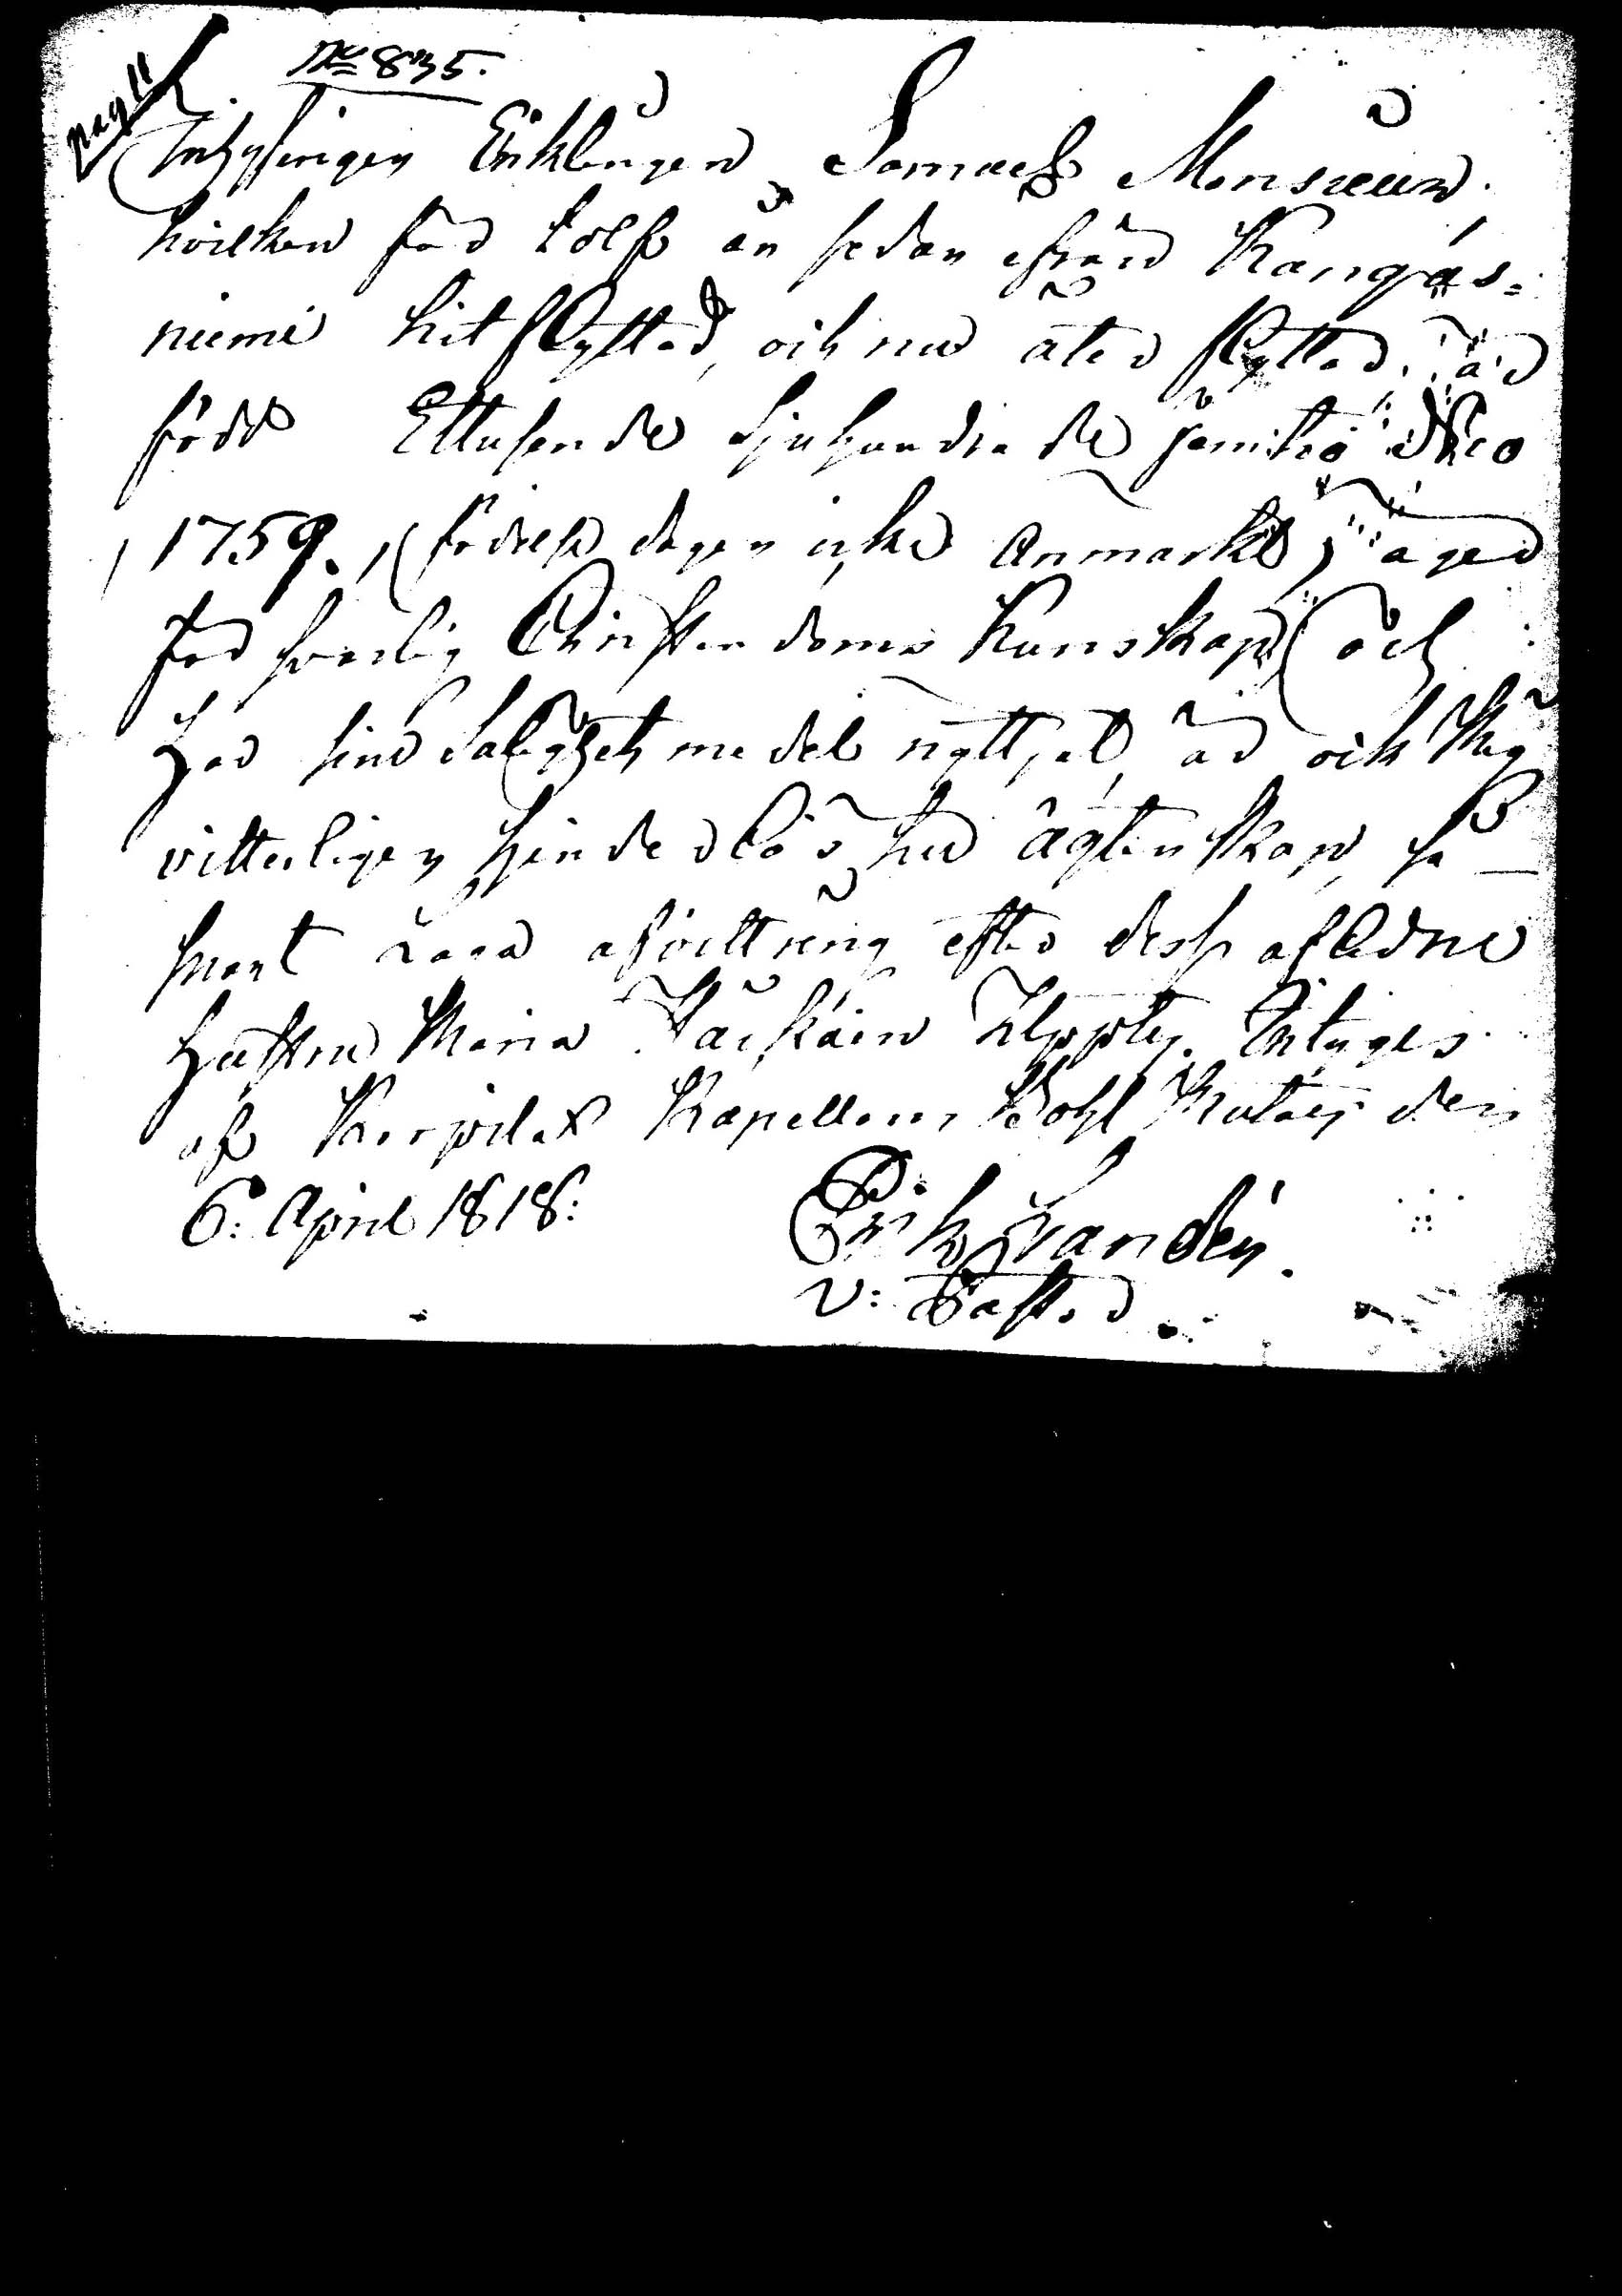 pag 11
No 835.
Inhysingen Enklingen Samuel Monsieur
hvilken för tolf år sedan ifrån Kangas=
niemi hit flyttad, och nu åter flyttar, är
född Ettusende Sjuhundrade femtio Nio
1759. (födelse dagen icke Anmärkt) äger
försvarlig Christendoms Kunskap och
Har sine Salighets medel nyttjat, är och Mig
vitterligen hinderlös till Ägtenskap, så
snart Laga afvittring efter dess aflidne
Hustru Maria upptes. Intyges
af Korpilax Kapellans Bohl den
6: April 1818:
Erik Landén.
V: Pastor.